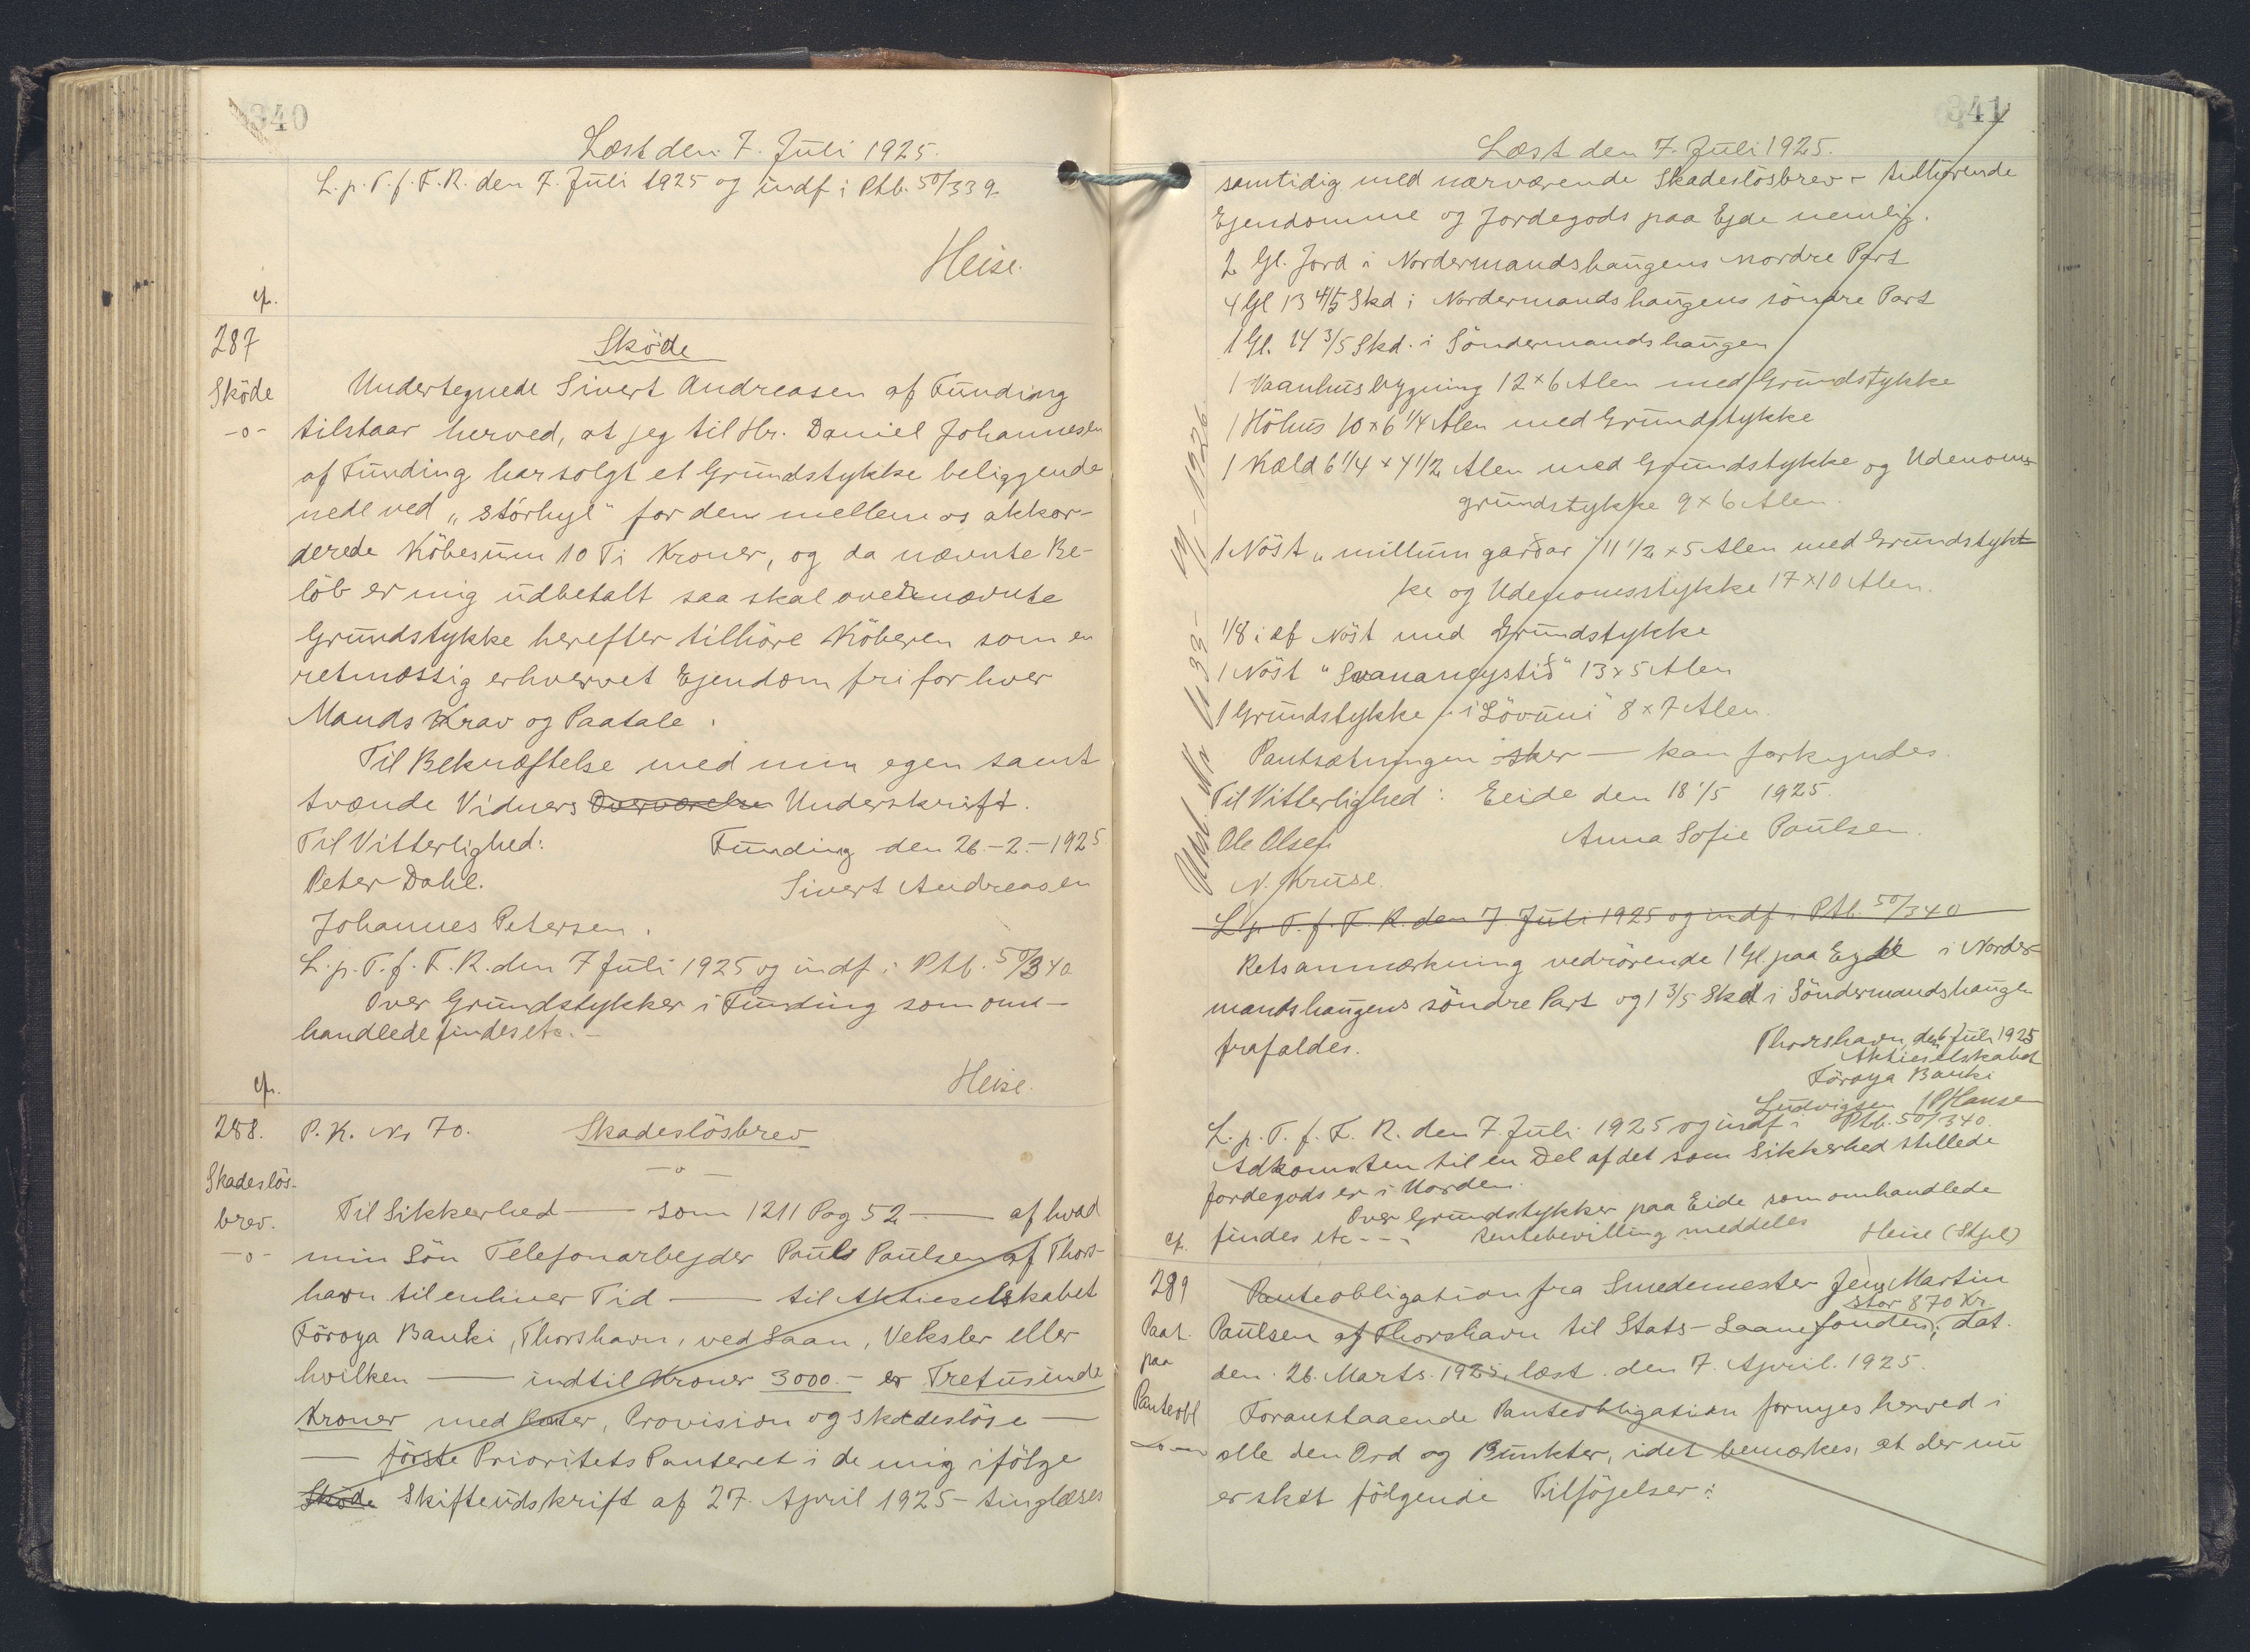 340
Læst den 7. Juli 1925.
L. p. T. f. F. R. den 7. Juli 1925 og indf i Ptb. 50/339.
Heise.
cf.
287
Sköde
Sköde
-o-
Undertegnede Sivert Andreasen af Funding
tilstaar herved, at jeg til Hr. Daniel Johannesen
af Funding har solgt et Grundstykke beliggende
nede ved „stórhyl" for den mellem os akkor-
derede Köbesum 10 Ti Kroner, og da nævnte Be-
löb er mig udbetalt saa skal ovennævnte
Grundstykke herefter tilhöre Köberen som en
retmæssig erhvervet Ejendom fri for hver
Mands Krav og Paatale.
Til Bekræftelse med min egen samt
tvende Vidners Overværelse Underskrift.
Til Vitterlighed: Funding den 26-2-1925
Peter Dahl. Sivert Andreasen
Johannes Petersen.
L. p. T. f. F. R. den 7 Juli 1925 og indf i Ptb. 50/340
Over Grundstykker i Funding som om-
handlede findes etc.-
Heise.
cf.
288. P. K. No 70. Skadeslösbrev
-o-
Skadeslös-
brev.
-o-
Til Sikkerhed — som 1211 Pag 52 — af hvad
min Sön Telefonarbejder Pauls Paulsen af Thors-
havn til enhver Tid — til Aktieselskabet
Föroya Banki, Thorshavn, ved Laan, Veksler eller
hvilken — indtil Kroner 3000.- er Tretusinde
Kroner med Renter, Provision og skadeslöse —
— förste Prioritets Panteret i de mig ifölge
Sköde Skifteudskrift af 27. April 1925 - tinglæses
341
Læst den 7. Juli 1925.
samtidig med nærværende Skadeslösbrev - tilhørende
Ejendomme og Jordegods paa Ejde nemlig.
2 Gl. Jord i Nordermandshaugens nordre Part
4 Gl 13 4/5 Skd i Nordermandshaugens söndre Part
1 Gl. 14 3/5 Skd. i Söndermandshaugen
1 Vaanhusbygning 12 x 6 Alen med Grundstykke
1 Höhus 10 x 6 1/4 Alen med Grundstykke
1 Kæld 6 1/4 x 4 1/2 Alen med Grundstykke og Udenoms
grundstykke 9 x 6 Alen.
1 Nöst „millum gardar" 11 1/2 x 5 Alen med Grundstyk
ke og Udenomsstykke 17 x 10 Alen.
1/8 i et Nöst med Grundstykke
1 Nöst "Svanangystid" 13 x 5 Alen
1 Grundstykke "i Lövuni" 8 x 7 Alen.
Pantsætningen sker — kan forkyndes.
Til Vitterlighed: Eeide den 18/5 1925.
Ole Olsen Anna Sofie Paulsen.
N. Kruse.
L. p. T. f. F. R. den 7. Juli 1925 og indf i Ptb. 50/340
Retsanmærkning vedrörende 1 Gl. paa Ejde i Norder-
mandshaugens söndre Part og 1 3/5 Skd i Söndermandshaugen
frafaldes.
Thorshavn, den 6 Juli 1925
Aktieselskabet
Föroya Banki
Ludvigsen / P Hansen
L. p. T. f. F. R. den 7. Juli 1925 og indf i Ptb. 50/340.
Adkomsten til en Del af det som Sikkerhed stillede
Jordegods er i Uorden.
Over Grundstykker paa Eide som omhandlede
findes etc --- Rentebevilling meddeles
Heise (Stpl)
cf.
289
Paat.
paa
Panteobl
Panteobligation fra Smedemester Jens Martin
stor 870 Kr
Paulsen af Thorshavn til Stats-Laanefonden, dat.
den 26. Marts 1925, læst den 7. April. 1925.
Foranstaaende Panteobligation fornyes herved i
alle den Ord og Punkter, idet bemærkes, at der nu
er sket fölgende Tilföjelser: